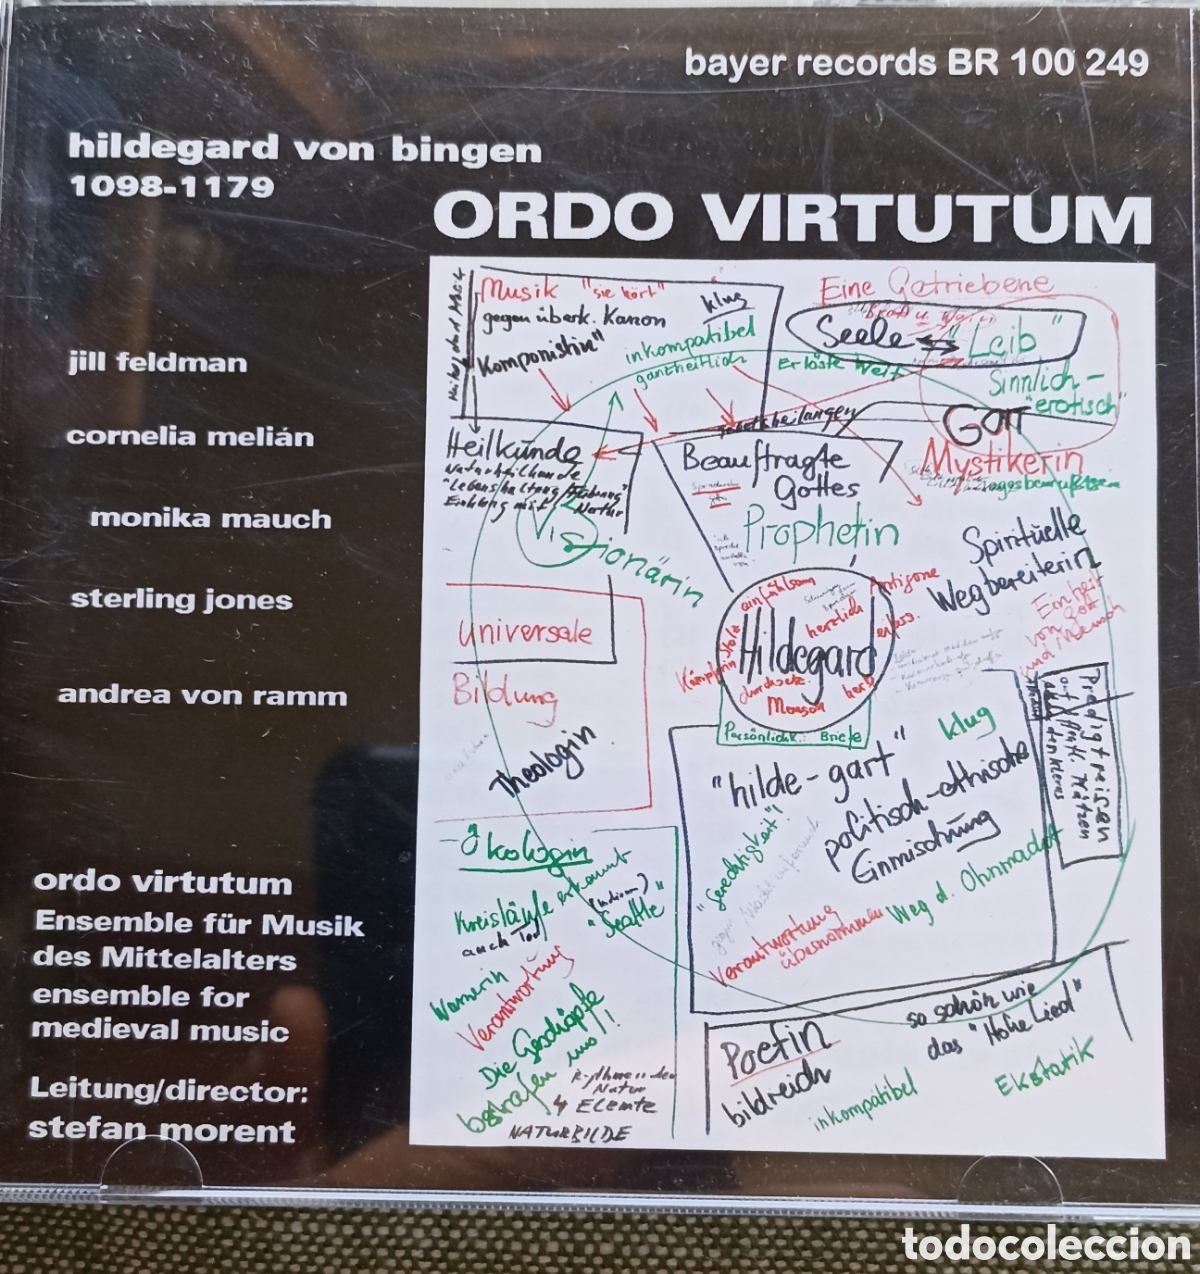 bayer records BR 100 249
hildegard von bingen
1098-1179
ORDO VIRTUTUM
jill feldman
cornelia melián
monika mauch
sterling jones
andrea von ramm
ordo virtutum
Ensemble für Musik
des Mittelalters
ensemble for
medieval music
Leitung/director:
stefan morent
Musik "sie hört"
gegen überk. Kanon
Komponistin"
klug
inkompatibel
ganzheitlich
Eine Getriebene
Seele ↔ "Leib"
Erlöste Welt
Sinnlich-
"erotisch"
GOTT
Mystikerin
Heilkunde
Naturheilkunde
"Lebenshaltung
Einklang mit Natur
Visionärin
Beauftragte
Gottes
Prophetin
Spirituelle
Wegbereiterin
Einheit
von Gott
und Mensch
einfühlsam
Antigone
herzlich
Hildegard
Kämpferin stolz
durchsetz.
herb
Mensch
Persönlichk.: Briefe
Universale
Bildung
Theologin
"hilde-gart"
klug
politisch-ethische
Einmischung
"Gerechtigkeit"!
Weg d. Ohnmacht
Verantwortung
übernommen
Predigtreisen
auf öffentl. Plätzen
-Ökologin
Kreisläufe erkannt
auch Tod
"Seattle"
Warnerin
Verantwortung
Die Geschöpfe
bestrafen uns!
Rythmen der
Natur
4 Elemte
NATURBILDE
Poetin
bildreich
so schön wie
das "Hohe Lied"
inkompatibel
Ekstatik
todocoleccion